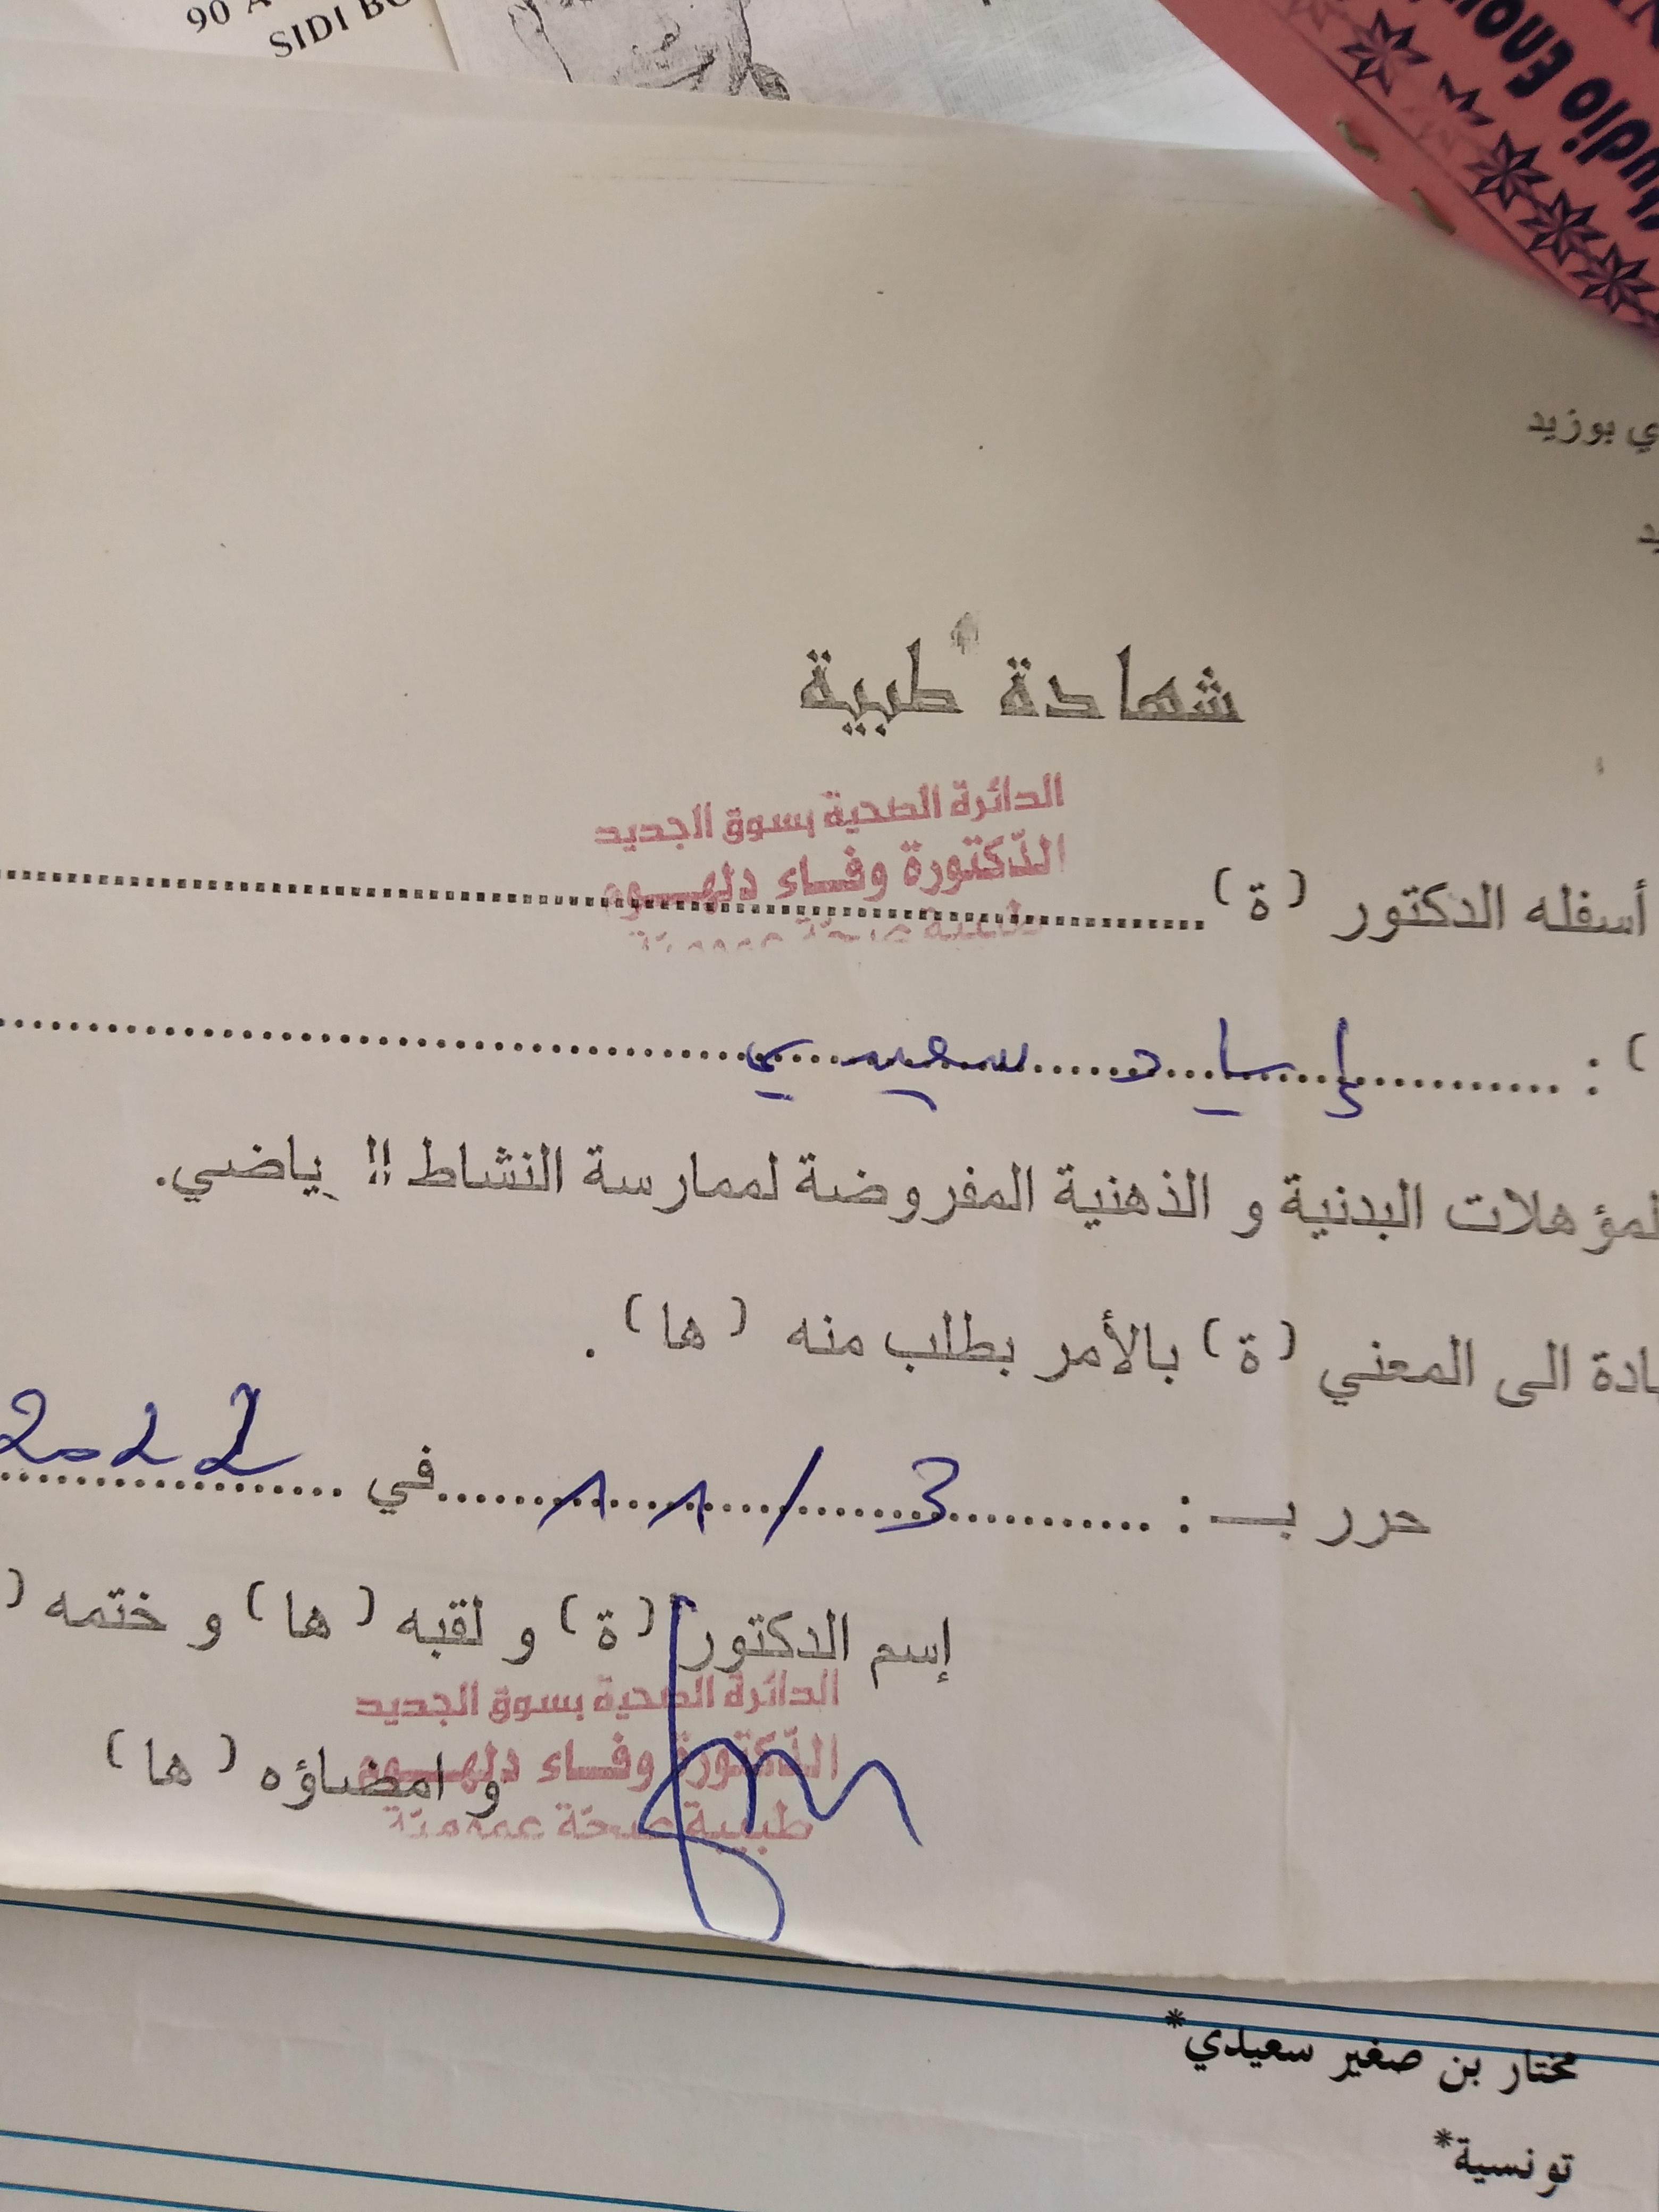 90 A
SIDI BO
Studio Enou
ي بوزيد
يد
شهادة طبية
الدائرة الصحية بسوق الجديد
الدّكتورة وفـــاء دلهـــوم
طبيبة صحّة عموميّة
أسفله الدكتور (ة)
) : إياد سعيدي
لمؤهلات البدنية و الذهنية المفروضة لممارسة النشاط الرياضي.
ادة الى المعني (ة) بالأمر بطلب منه (ها) .
حرر بـــ : 3 / 11 في 2022
إسم الدكتور (ة) و لقبه (ها) و ختمه (
الدائرة الصحية بسوق الجديد
الدّكتورة وفـــاء دلهـــوم
و امضاؤه (ها)
طبيبة صحّة عموميّة
مختار بن صغير سعيدي*
تونسية*